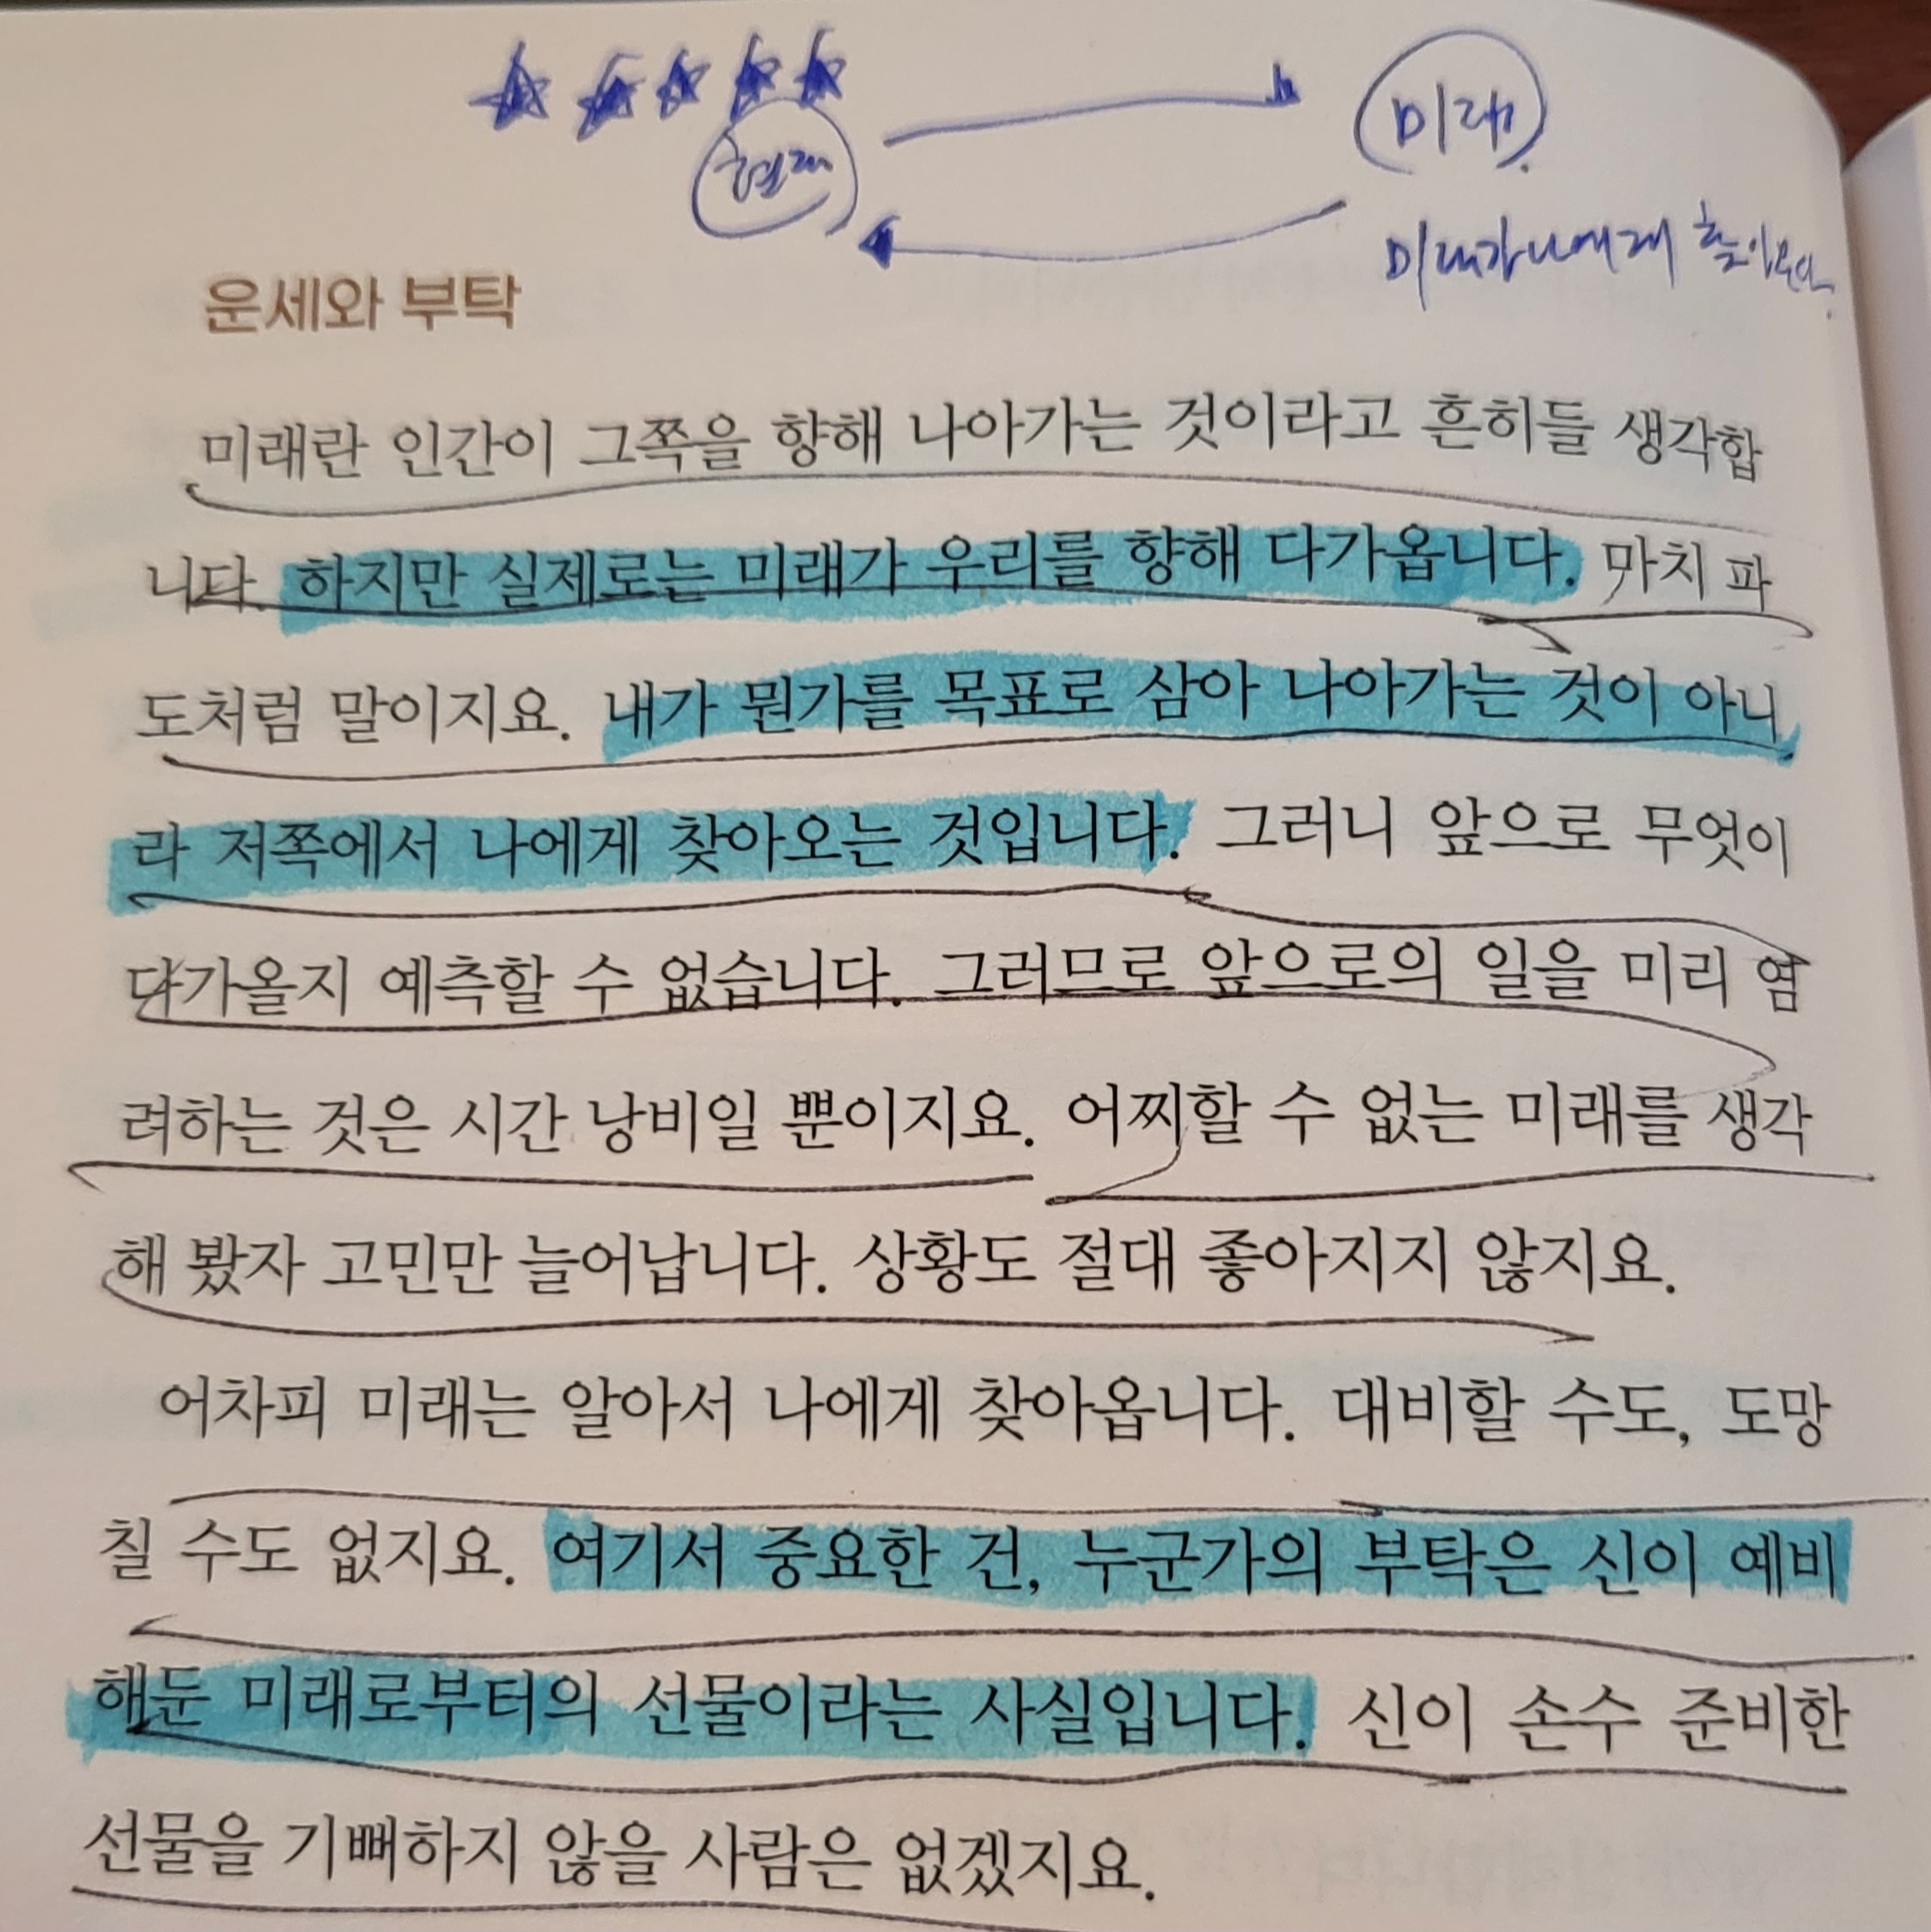 현재
미래
미래가 나에게 찾아온다.
운세와 부탁
미래란 인간이 그쪽을 향해 나아가는 것이라고 흔히들 생각합
니다. 하지만 실제로는 미래가 우리를 향해 다가옵니다. 마치 파
도처럼 말이지요. 내가 뭔가를 목표로 삼아 나아가는 것이 아니
라 저쪽에서 나에게 찾아오는 것입니다. 그러니 앞으로 무엇이
다가올지 예측할 수 없습니다. 그러므로 앞으로의 일을 미리 염
려하는 것은 시간 낭비일 뿐이지요. 어찌할 수 없는 미래를 생각
해 봤자 고민만 늘어납니다. 상황도 절대 좋아지지 않지요.
어차피 미래는 알아서 나에게 찾아옵니다. 대비할 수도, 도망
칠 수도 없지요. 여기서 중요한 건, 누군가의 부탁은 신이 예비
해둔 미래로부터의 선물이라는 사실입니다. 신이 손수 준비한
선물을 기뻐하지 않을 사람은 없겠지요.